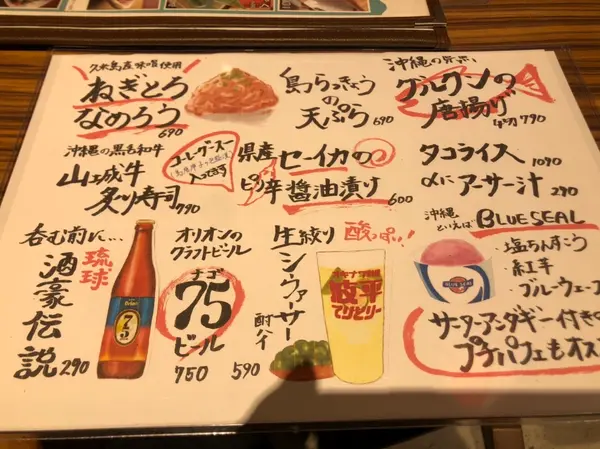 久米島産味噌使用
ねぎとろ
なめろう
690
島らっきょうの
天ぷら 690
沖縄の
グルクンの
唐揚げ
790
沖縄の黒毛和牛
山城牛
炙り寿司 790
コーレーグースー
入ってます
県産セーイカの
ピリ辛醤油漬け 600
タコライス 1090
〆にアーサー汁 290
呑む前に…
琉球
酒豪伝説 290
75
オリオンの
クラフトビール
75
ビール
750
生絞り 酸っぱい!
シークヮーサー
酎ハイ
590
てりとりー
沖縄
といえば BLUE SEAL
BLUE SEAL
・塩ちんすこう
・紅芋
・ブルーウェーブ
サーターアンダギー付きの
プチパフェもオス